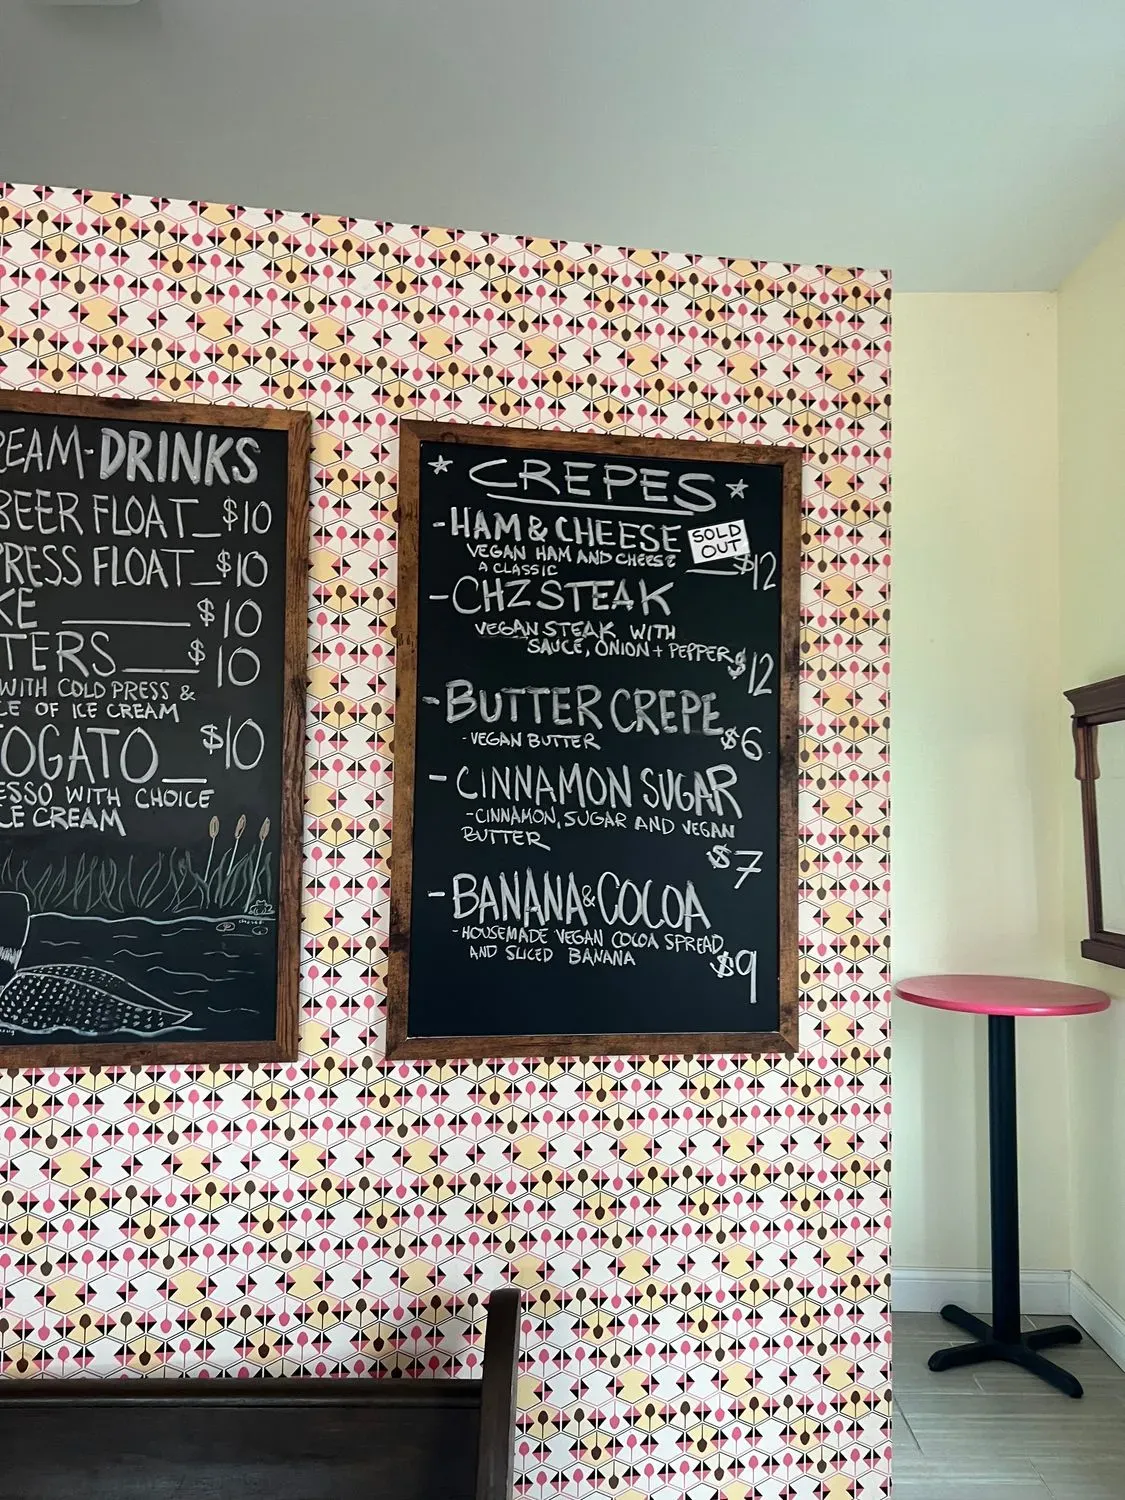 EAM-DRINKS
BEER FLOAT_$10
PRESS FLOAT_$10
KE ______ $10
TERS___$10
WITH COLD PRESS &
LE OF ICE CREAM
OGATO__ $10
ESSO WITH CHOICE
CE CREAM
CREPES
-HAM & CHEESE
SOLD
OUT
VEGAN HAM AND CHEESE __$12
A CLASSIC
-CHZSTEAK
VEGAN STEAK WITH
SAUCE, ONION + PEPPER $12
-BUTTER CREPE
-VEGAN BUTTER $6
-CINNAMON SUGAR
-CINNAMON, SUGAR AND VEGAN
BUTTER
$7
-BANANA & COCOA
-HOUSEMADE VEGAN COCOA SPREAD
AND SLICED BANANA $9